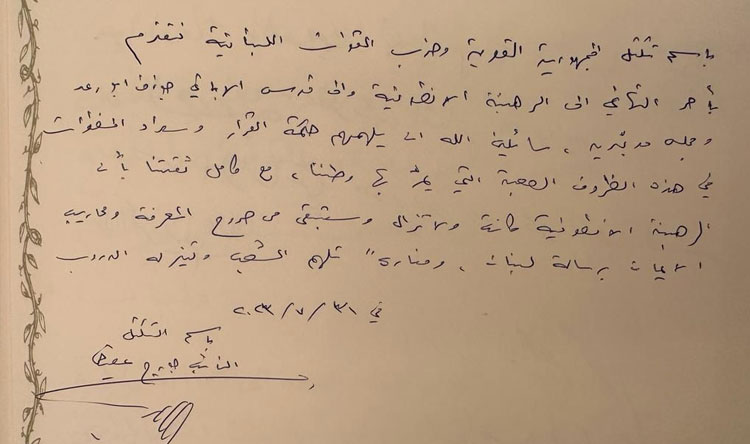 باسم تكتل الجمهورية القوية وحزب القوات اللبنانية نتقدم
بأحر التهاني الى الرهبنة الانطونية والى قدس الاباتي جوزف بو رعد
ومجلس مدبّريه، سائلين الله ان يلهمهم حكمة القرار وسداد الخطوات
في هذه الظروف الصعبة التي يمرّ بها وطننا، مع كامل ثقتنا بأن
الرهبنة الانطونية كانت ولا تزال وستبقى من صروح المعرفة ومحاريب
الايمان برسالة لبنان، ومنارة" تلهم الشعب وتنير له الدروب
في ٣١/٧/٢٠٢٣
باسم التكتل
النائب جورج عقيص